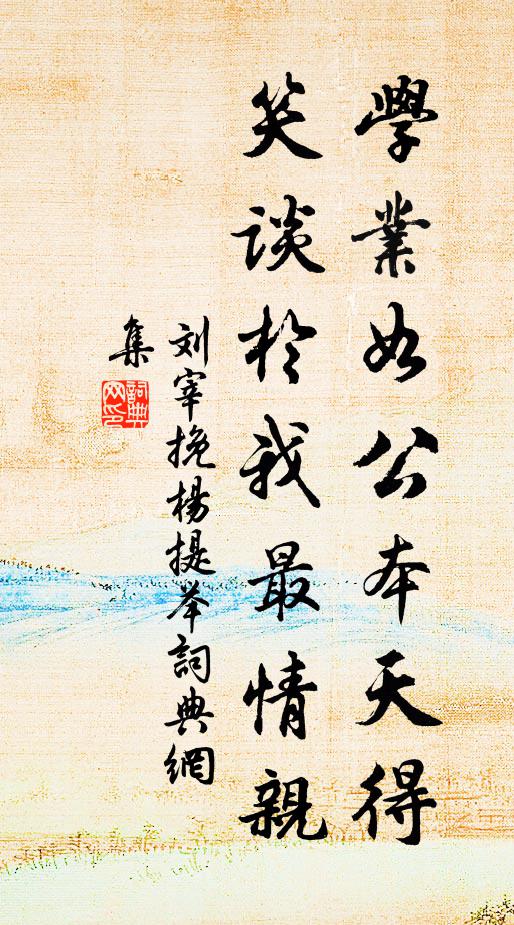 學業如公本天得
笑談於我最情親
刘宰挽楊提举詞典網
集
詞典
网印